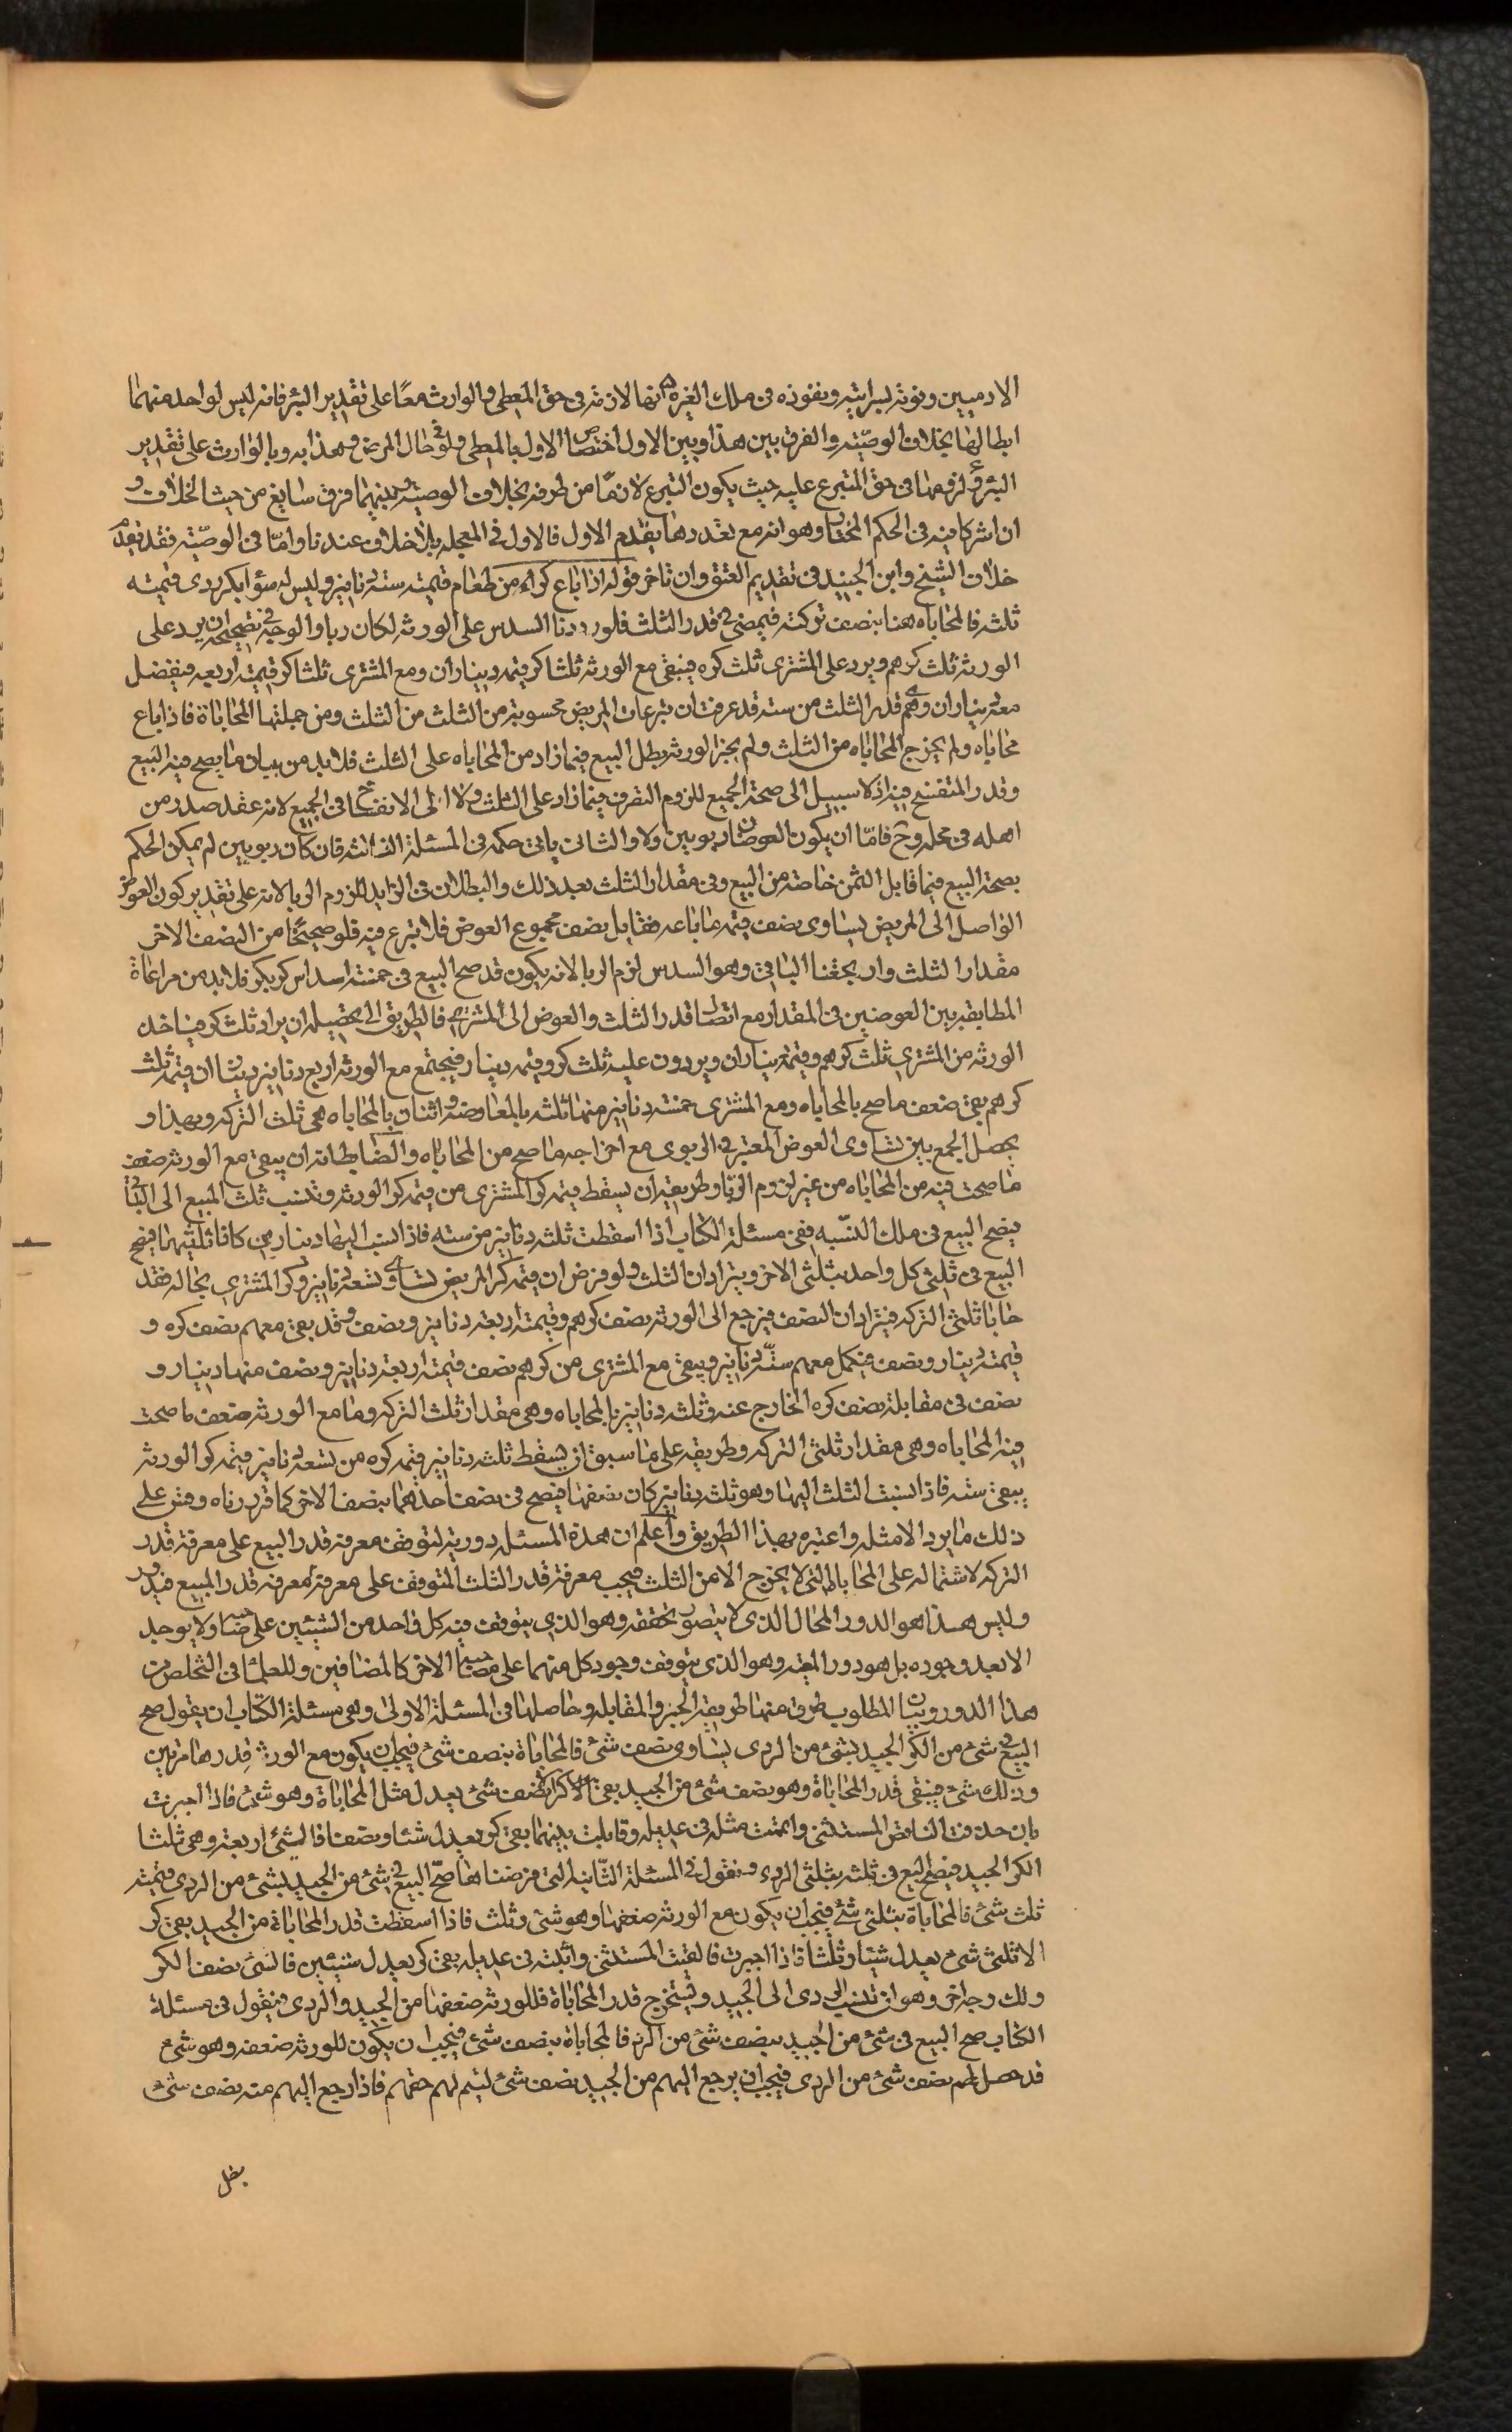 الادميين وقوته لسرايته ونفوذه في ملك الغير ه انها لازمة في حق المعطي والوارث معا على تقدير البرء فانه ليس لواحد منهما
ابطالها بخلاف الوصية والفرق بين هذا وبين الاول اختصاص الاول بالمعطي ولو في حال المرض وهذا به وبالوارث على تقدير
البرء و لزومها في حق المتبرع عليه حيث يكون التبرع لازما من طرفه بخلاف الوصية وبينهما فرق سايغ من حيث الخلاف و
ان اشركا فيه في الحكم المختار وهو انه مع تعددها يقدم الاول فالاول في المعجلة بلا خلاف عندنا واما في الوصية فقد تقدم
خلاف الشيخ وابن الجنيد في تقديم العتق وان تاخر قوله اذا باع كرا من طعام قيمته ستة دنانير وليس له سواه بكر ردى قيمته
ثلثه فالمحاباه هنا بنصف تركته فيمضى في قدر الثلث فلو رددنا السدس على الورثه لكان ربا والوجه في تصحيحه ان يرد على
الورثه ثلث كرهم ويرد على المشترى ثلث كره فيبقى مع الورثه ثلثا كر قيمه ديناران ومع المشترى ثلثا كر قيمته اربعه فيفضل
معه ديناران وهى قدر الثلث من سته قد عرفت ان تبرعات المريض محسوبة من الثلث ومن جملتها المحاباة فاذا باع
محاباه ولم يخرج المحاباه من الثلث ولم يجز الورثه بطل البيع فيما زاد من المحاباه على الثلث فلابد من بيان ما يصح فيه البيع
وقدر المنفسخ فيه اذ لا سبيل الى صحة الجميع للزوم التصرف فيما زاد على الثلث ولا الى الانفساخ في الجميع لانه عقد صدر من
اهله في محله وح فاما ان يكون العوضان ربويين ولا والثانى ياتى حكمه في المسئلة الثالثه فان كان ربويين لم يمكن الحكم
بصحة البيع فيما قابل الثمن خاصة من البيع وفى مقدار الثلث بعد ذلك والبطلان في الزايد للزوم الربا لانه على تقدير كون العوض
الواصل الى المريض يساوى نصف قيمه ما باعه فقابل نصف مجموع العوض فلا تبرع فيه فلو صححنا من النصف الاخر
مقدار الثلث وارجعنا الباقى وهو السدس لزم الربا لانه يكون قد صح البيع في خمسة اسداس كر بكر فلابد من مراعاة
المطابقة بين العوضين في المقدار مع اتصال قدر الثلث والعوض الى المشترى فالطريق الى تحصيله ان يراد ثلث كر فياخذ
الورثه من المشترى ثلث كرهم وقيمته ديناران ويردون عليه ثلث كره وقيمه دينار فيجتمع مع الورثه اربع دنانير ديناران قيمه ثلث
كرهم بقى ضعف ما صح بالمحاباه ومع المشترى خمسه دنانير منها ثلثه بالمعاوضه واثنان بالمحاباه هى ثلث التركه وبهذا و
يحصل الجمع بين تساوى العوض المعتبر في الربوى مع اخراجه ما صح من المحاباه والضابط انه ان يبقى مع الورثه ضعف
ما صحت فيه من المحاباه من غير لزوم الربا وطريقه ان يسقط قيمه كر المشترى من قيمه كر الورثه وتنسب ثلث المبيع الى الباقى
فيصح البيع في ملك النسبه ففى مسئلة الكتاب اذا اسقطت ثلثه دنانير من سته فاذا نسب اليها دينارين كانا ثلثيها فيصح
البيع في ثلثى كل واحد بثلثى الاخر ويترادان الثلث ولو فرض ان قيمه كر المريض تساوى تسعه دنانير وكر المشترى بحاله فقد
حابا ثلثى التركه فيترادان النصف فيرجع الى الورثه نصف كرهم وقيمته اربعه دنانير ونصف وقد بقى معهم نصف كره و
قيمته دينار ونصف فيكمل معهم ستة دنانير ويبقى مع المشترى من كرهم نصف قيمته اربعة دنانير ونصف منها دينار و
نصف في مقابلة نصف كره الخارج عنه وثلثه دنانير بالمحاباه وهى مقدار ثلث التركه وما مع الورثه ضعف ما صحت
فيه المحاباه وهى مقدار ثلثى التركه وطريقه على ما سبق ان يسقط ثلثه دنانير قيمه كره من تسعه دنانير قيمه كر الورثه
يبقى سته فاذا نسبت الثلث اليها وهو ثلثه دنانير كان نصفها فيصح في نصف احدهما بنصف الاخر كما قررناه وقس على
ذلك ما يرد الامثله واعتبره بهذا الطريق واعلم ان هذه المسئله دورية لتوقف معرفه قدر البيع على معرفة قدر
التركه لاشتماله على المحاباه التى لا يخرج الا من الثلث فيجب معرفة قدر الثلث المتوقف على معرفة معرفة قدر المبيع فيدور
وليس هذا هو الدور المحال الذى لا يتصور تحققه وهو الذى يتوقف فيه كل واحد من الشيئين على صاحبه ولا يوجد
الا بعد وجوده بل هو دور المعيه وهو الذى يتوقف وجود كل منهما على مصاحبة الاخر كالمضافين وللعلماء في التخلص من
هذا الدور وبيان المطلوب طرق منها طريقة الجبر والمقابله وحاصلها في المسئلة الاولى وهى مسئلة الكتاب ان يقول صح
البيع في شئ من الكر الجيد بشئ من الردى يساوى نصف شئ فالمحاباة بنصف شئ فيجب ان يكون مع الورثه قدرها مرتين
وذلك شئ فيبقى قدر المحاباة وهو نصف شئ من الجيد بقى كر الا نصف شئ يعدل مثل المحاباة وهو شئ فاذا اجبرت
بان حذفت الناقص المستثنى واتممت مثله في عديله وقابلت بينهما بقى كر يعدل شئا ونصفا فالشئ اربعة وهى ثلثا
الكر الجيد فيصح البيع في ثلثه بثلثى الردى ونقول في المسئلة الثانيه التى فرضناها صح البيع في شئ من الجيد بشئ من الردى قيمته
ثلث شئ فالمحاباة بثلثى شئ فيجب ان يكون مع الورثه ضعفها وهو شئ وثلث فاذا اسقطت قدر المحاباة من الجيد بقى كر
الا ثلثى شئ يعدل شيئا وثلثا فاذا اجبرت فالقيت المستثنى واثبته في عديله بقى كر يعدل شيئين فالشئ نصف الكر
ولك وجه اخر وهو ان تنسب الردى الى الجيد وتستخرج قدر المحاباة فللورثه ضعفها من الجيد والردى فيقول في مسئلة
الكتاب صح البيع في شئ من الجيد بنصف شئ من الردى فالمحاباة بنصف شئ فيجب ان يكون للورثه ضعفه وهو شئ
قد حصل لهم نصف شئ من الردى فيجب ان يرجع اليهم من الجيد نصف شئ ليتم لهم حقهم فاذا رجع اليهم منه نصف شئ